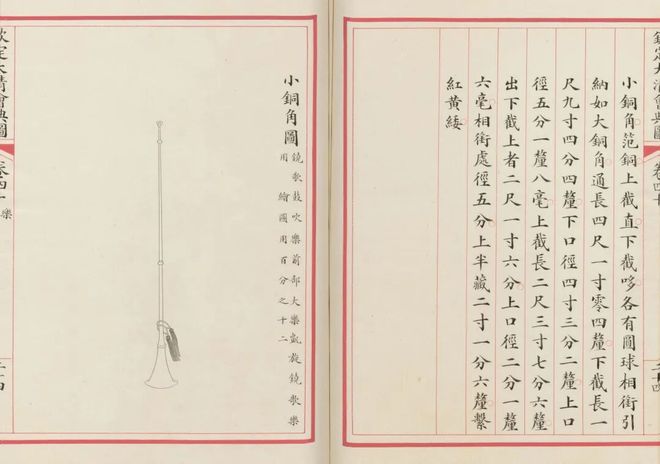 欽定大清會典圖
卷四十
小銅角范銅上截直下截哆各有圓球相銜引
納如大銅角通長四尺一寸零四釐下截長一
尺九寸四分四釐下口徑四寸三分二釐上口
徑五分一釐八毫上截長二尺三寸七分六釐
出下截上者二尺一寸六分上口徑二分一釐
六毫相銜處徑五分上半藏二寸一分六釐繫
紅黃緌
小銅角圖
鐃歌鼓吹樂前部大樂凱旋鐃歌樂
用 繪圖用百分之十二
欽定大清會典圖
卷四十 樂